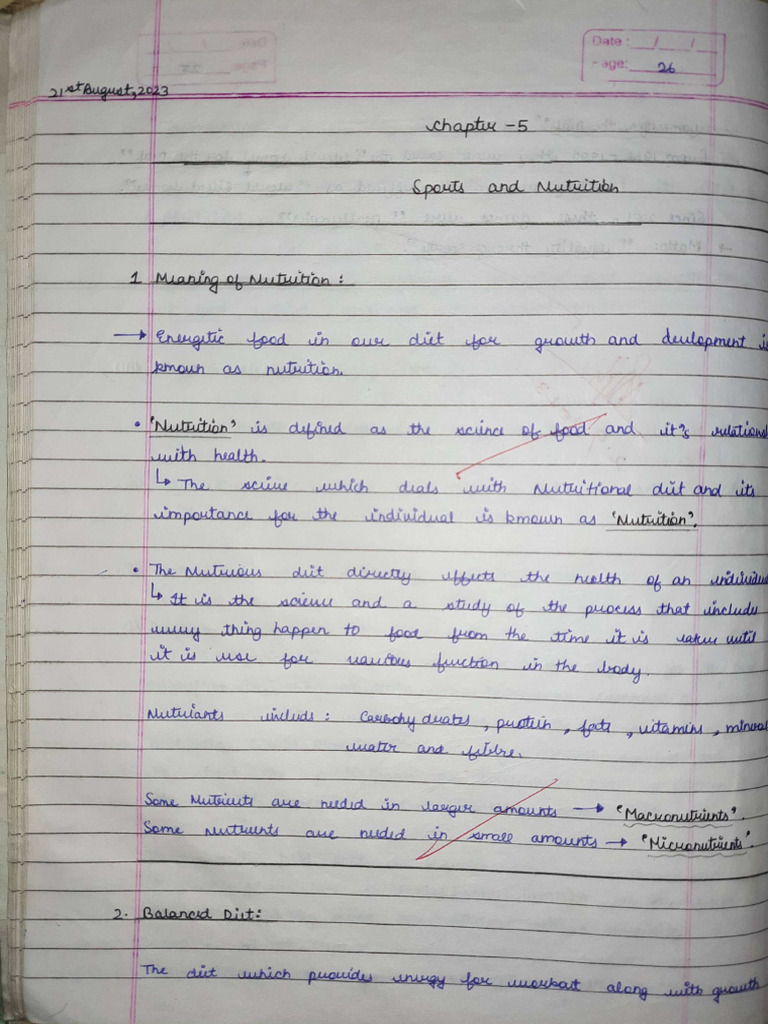 Date : / /
Page: 26
21st August, 2023
Chapter - 5
Sports and Nutrition
1 Meaning of Nutrition :
→ Energetic food in our diet for growth and development is
known as nutrition.
• 'Nutrition' is defined as the science of food and it's relational
with health.
↳ The science which deals with Nutritional diet and its
importance for the individual is known as 'Nutrition'.
• The Nutrious diet directly effects the health of an individual
↳ It is the science and a study of the process that include
every thing happen to food from the time it is taken until
it is use for various function in the body.
Nutriants include : Carbohydrates, protein, fats, vitamins, mineral
water and fibre.
Some Nutrients are needed in larger amounts → "Macronutrients".
Some nutrients are needed in small amounts → "Micronutrients".
2. Balanced Diet:
The diet which provides energy for workout along with growth